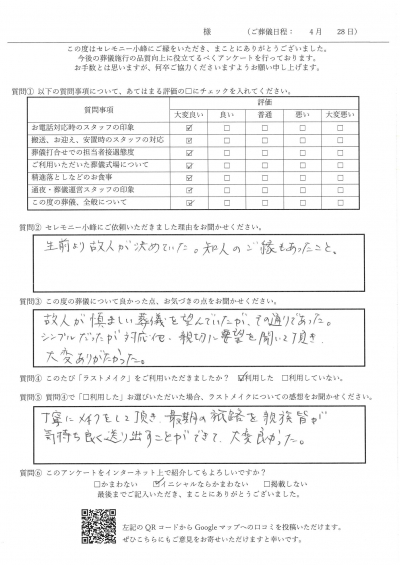 様　（ご葬儀日程：　4月　28日）
この度はセレモニー小峰にご縁をいただき、まことにありがとうございました。
今後の葬儀施行の品質向上に役立てるべくアンケートを行っております。
お手数とは思いますが、何卒ご協力くださいますようお願い申し上げます。
質問① 以下の質問事項について、あてはまる評価の□にチェックを入れてください。
質問事項　評価
大変良い　良い　普通　悪い　大変悪い
お電話対応時のスタッフの印象　☑　□　□　□　□
搬送、お迎え、安置時のスタッフの対応　☑　□　□　□　□
葬儀打合せでの担当者接遇態度　☑　□　□　□　□
ご利用いただいた葬儀式場について　☑　□　□　□　□
精進落としなどのお食事　☑　□　□　□　□
通夜・葬儀運営スタッフの印象　☑　□　□　□　□
この度の葬儀、全般について　☑　□　□　□　□
質問② セレモニー小峰にご依頼いただきました理由をお聞かせください。
生前より故人が決めていた。知人のご縁もあったこと。
質問③ この度の葬儀について良かった点、お気づきの点をお聞かせください。
故人が慎ましい葬儀を望んでいたが、その通りであった。
シンプルだったが対応他、親切に要望を聞いて頂き、
大変ありがたかった。
質問④ このたび「ラストメイク」をご利用されましたか？　☑利用した　□利用していない。
質問⑤ 質問④で「□利用した」お選びいただいた場合、ラストメイクについての感想をお聞かせください。
丁寧にメイクをして頂き、最期の旅路を親族皆が
気持ち良く送り出すことができて、大変良かった。
質問⑥ このアンケートをインターネット上で紹介してもよろしいですか？
□かまわない　☑イニシャルならかまわない　□掲載しない
最後までご記入いただき、まことにありがとうございました。
左記のQRコードからGoogleマップへの口コミを投稿いただけます。
ぜひこちらにもご意見をお寄せいただけますと幸いです。